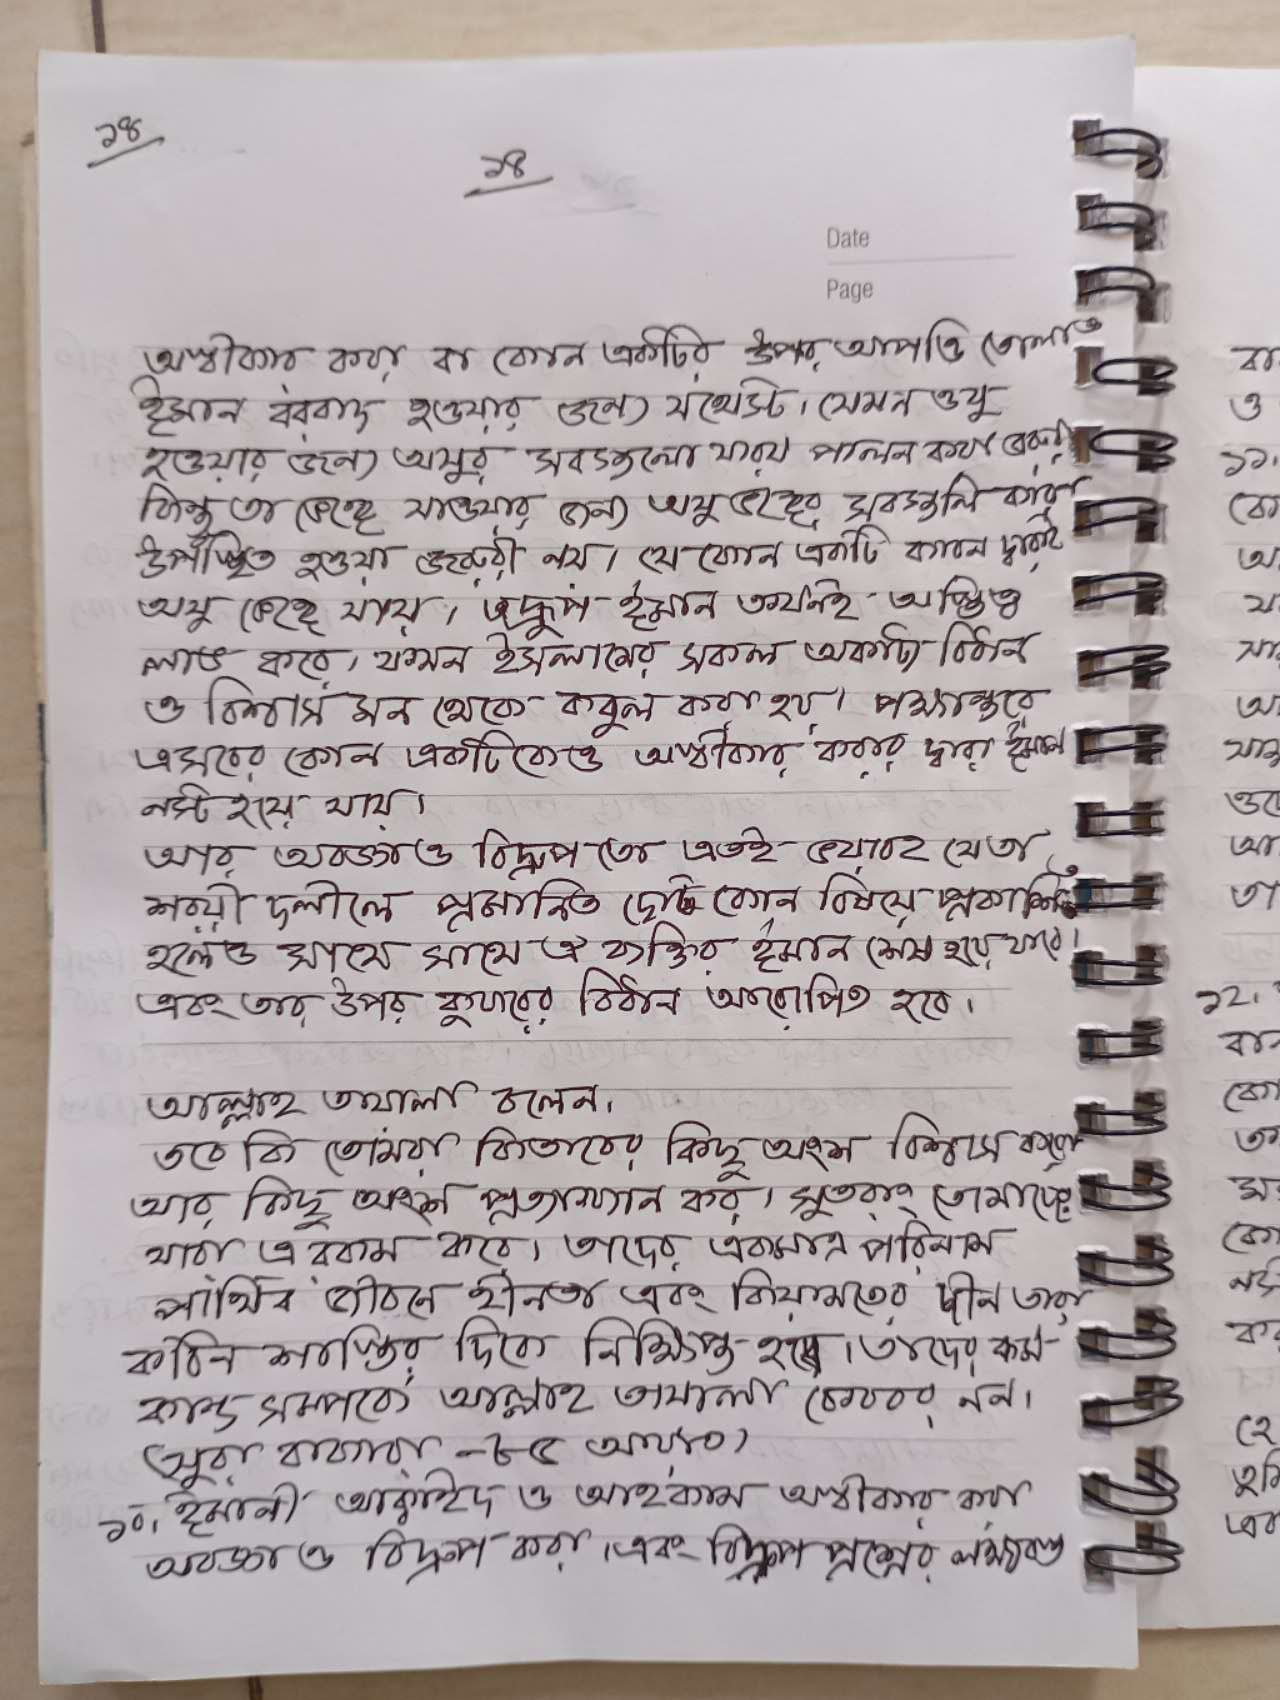 ১৪
১৪
Date
Page
অস্বীকার করা বা কোন একটির উপর আপত্তি তোলাও
ঈমান বরবাদ হওয়ার জন্যে যথেস্ট। যেমন ওযু
হওয়ার জন্যে অযুর সবগুলো ফরয পালন করা জরুরী
কিন্তু তা ভেঙ্গে যাওয়ার জন্য অযু ভঙ্গের সবগুলি কারণ
উপস্থিত হওয়া জরুরী নয়। যে কোন একটি কারন দ্বারাই
অযু ভেঙ্গে যায়। তদ্রূপ ঈমান তখনই অস্তিত্ব
লাভ করে। যখন ইসলামের সকল অকাট্য বিধান
ও বিশ্বাস মন থেকে কবুল করা হয়। পক্ষান্তরে
এসবের কোন একটিকেও অস্বীকার করার দ্বারা ঈমান
নস্ট হয়ে যায়।
আর অবজ্ঞা ও বিদ্রূপ তো এতই ভয়াবহ যে তা
শরয়ী দলীলে প্রমানিত ছোট কোন বিষয়ে প্রকাশিত
হলেও সাথে সাথে ঐ ব্যক্তির ঈমান শেষ হয়ে যাবে।
এবং তার উপর কুফরের বিধান আরোপিত হবে।
আল্লাহ তায়ালা বলেন।
তবে কি তোমরা কিতাবের কিছু অংশ বিশ্বাস করো
আর কিছু অংশ প্রত্যাখ্যান কর। সুতরাং তোমাদের
যারা এ রকম করে। তাদের একমাত্র পরিনাম
পার্থিব জীবনে হীনতা এবং কিয়ামতের দীন তারা
কঠিন শাস্তির দিকে নিক্ষিপ্ত হবে। তাদের কর্ম-
কান্ড সম্পর্কে আল্লাহ তায়ালা বেখবর নন।
(সুরা বাকারা -৮৫ আয়াত)
১০. ঈমানী আকাইদ ও আহকাম অস্বীকার করা
অবজ্ঞা ও বিদ্রূপ করা। এবং বিদ্রূপ প্রশ্নের লক্ষ্যবস্তু